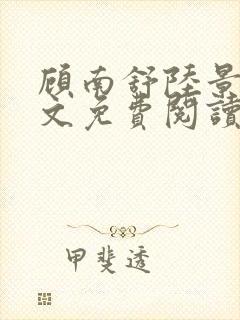 顾南舒陸景
文免費閱讀
甲斐透